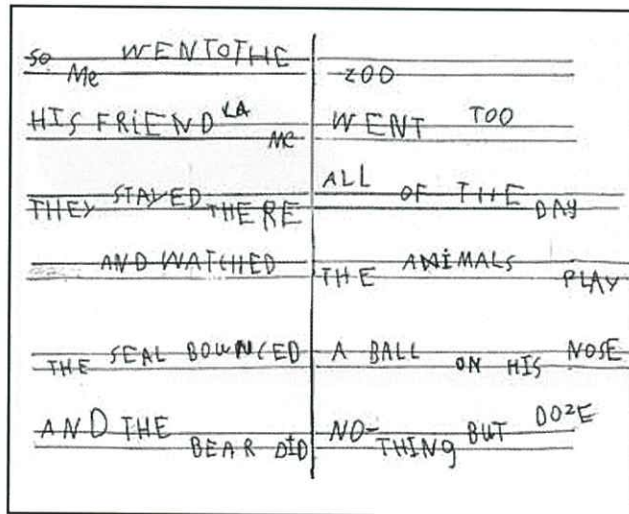 SO Me WENTOTHE ZOO
HIS FRiEND LA Me WENT TOO
THEY STAYED THERE ALL OF THE DAY
AND WATCHED THE ANiMALS PLAY
THE SEAL BOUNCED A BALL ON HIS NOSE
AND THE BEAR DiD NO-THINg BUT DOZE